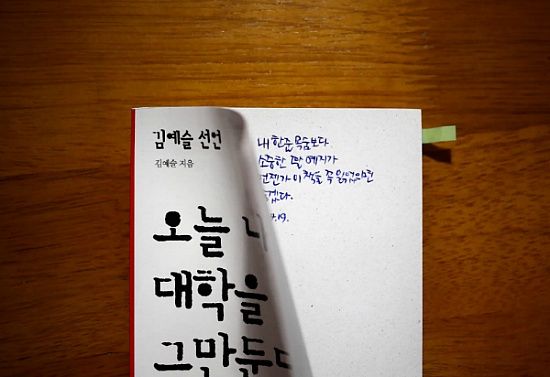 김예슬 선언
김예슬 지음
오늘 나
대학을
그만둔다
내 한줌 목숨보다
소중한 딸 예지가
언젠가 이 책을 꼭 읽었으면
좋겠다.
.19.